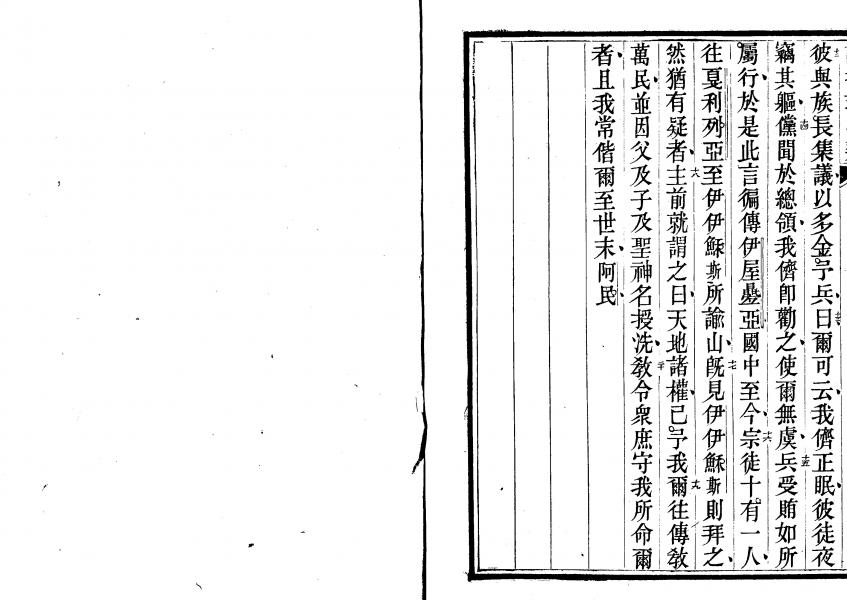 彼與族長集議以多金予兵曰爾可云我儕正眠彼徒夜
竊其軀儻聞於總領我儕卽勸之使爾無虞兵受賄如所
屬行於是此言徧傳伊屋疊亞國中至今宗徒十有一人
往戛利列亞至伊伊穌斯所諭山旣見伊伊穌斯則拜之
然猶有疑者主前就謂之曰天地諸權已予我爾往傳敎
萬民並因父及子及聖神名授洗敎令衆庶守我所命爾
者且我常偕爾至世末阿民